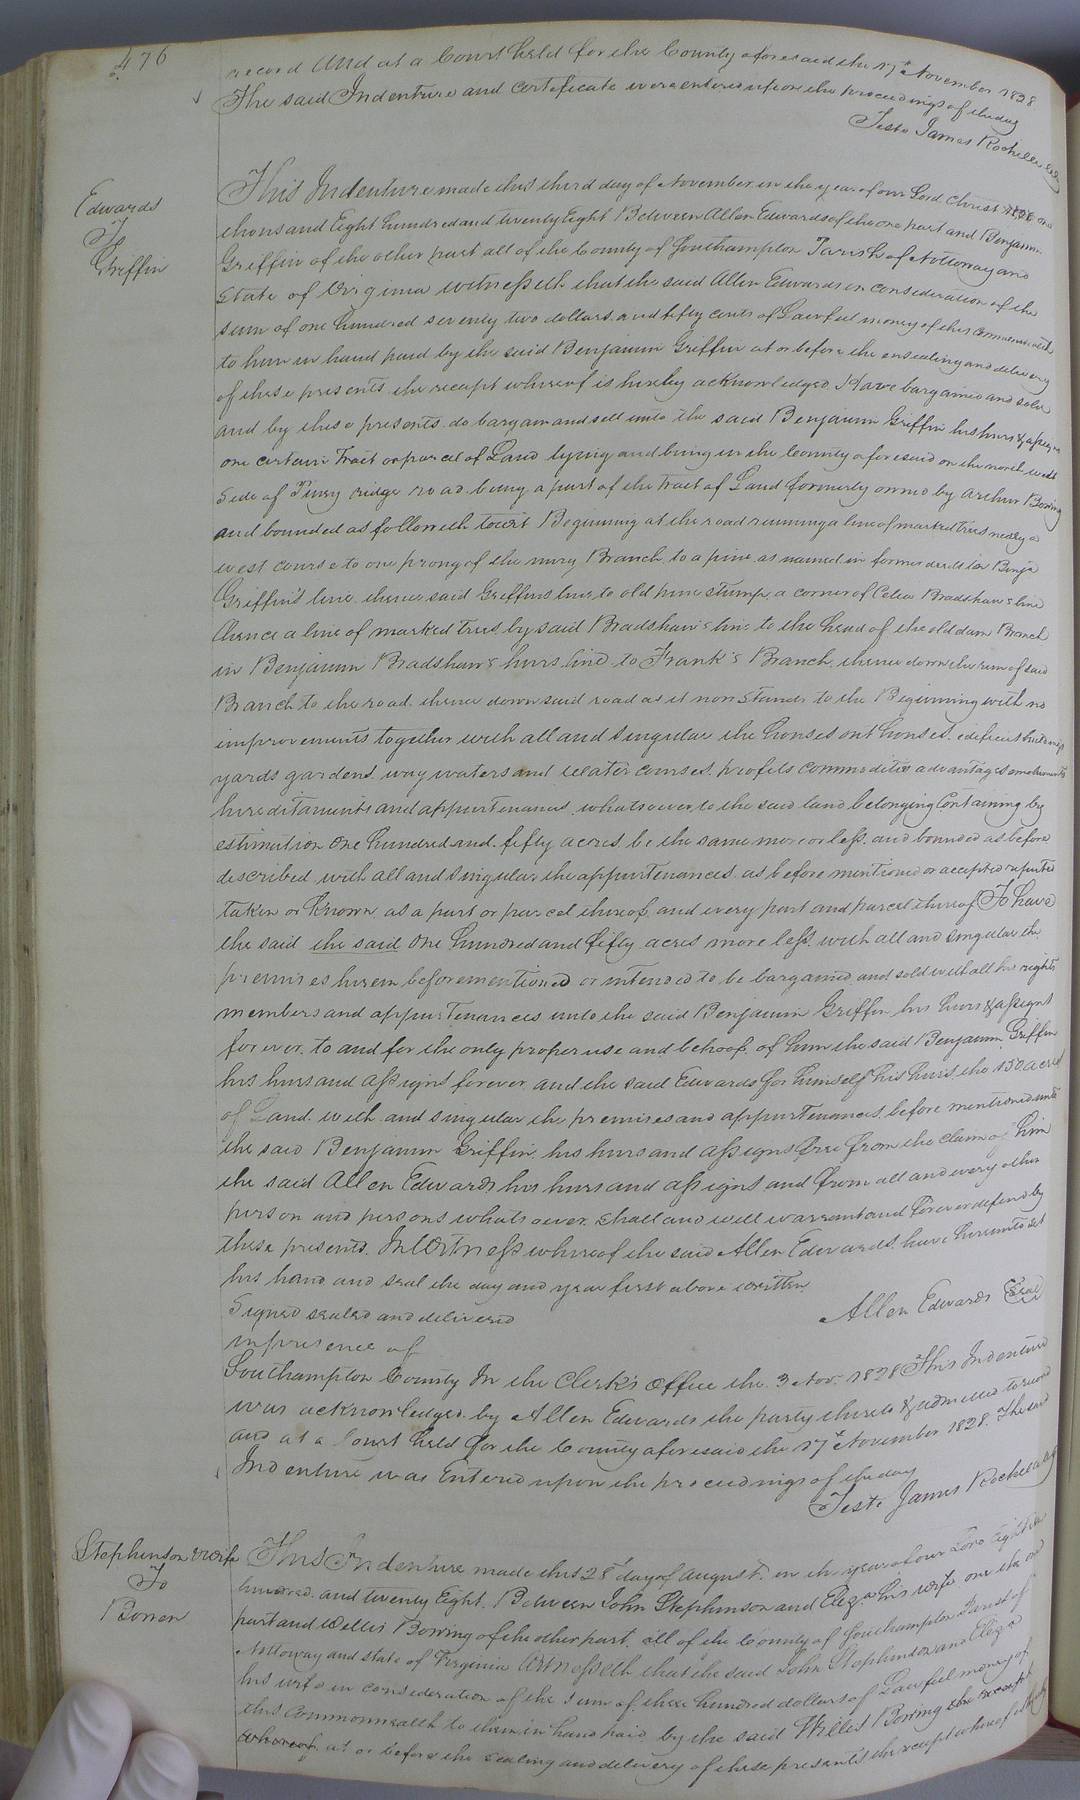 476
record And at a Court held for the County aforesaid the 17th November 1828
The said Indenture and certificate were entered upon the proceedings of the day
Teste James Rochelle Clk
Edwards
To
Griffin
This Indenture made this third day of November in the year of our Lord Christ one
thousand Eight hundred and twenty Eight Between Allen Edwards of the one part and Benjamin
Griffin of the other part all of the County of Southampton Parish of Nottoway and
State of Virginia witnesseth that the said Allen Edwards in consideration of the
sum of one hundred seventy two dollars and fifty cents of Lawful money of this commonwealth
to him in hand paid by the said Benjamin Griffin at or before the ensealing and delivery
of these presents the receipt whereof is hereby acknowledged Have bargained and sold
and by these presents do bargain and sell unto the said Benjamin Griffin his heirs & assigns
one certain Tract or parcel of Land lying and being in the County aforesaid on the north west
side of Piney ridge road being a part of the tract of Land formerly owned by Arthur Bowing
and bounded as followeth towit Beginning at the road running a line of marked trees nearly a
west course to one prong of the miry Branch to a pine as named in former deeds in Benja
Griffin's line thence said Griffins line to old pine stump a corner of Celia Bradshaw's line
thence a line of marked trees by said Bradshaw's line to the head of the old dam Branch
in Benjamin Bradshaw's heirs line to Frank's Branch thence down the run of said
Branch to the road thence down said road as it now Stands to the Beginning with no
improvements together with all and singular the houses out houses edifices buildings
yards gardens way waters and water courses profits commodities advantages emoluments
hereditaments and appurtenances whatsoever to the said land belonging Containing by
estimation One hundred and fifty acres be the same more or less and bounded as before
described with all and singular the appurtenances as before mentioned or accepted reputed
taken or known as a part or parcel thereof and every part and parcel thereof To have
the said the said One hundred and fifty acres more less with all and singular the
premises herein beforementioned or intended to be bargained and sold with all his rights
members and appurtenances unto the said Benjamin Griffin his heirs & assigns
forever to and for the only proper use and behoof of him the said Benjamin Griffin
his heirs and assigns forever and the said Edwards for himself his heirs the 150 acres
of Land with and singular the premises and appurtenances before mentioned unto
the said Benjamin Griffin his heirs and assigns free from the claim of him
the said Allen Edwards his heirs and assigns and from all and every other
person and persons whatsoever shall and will warrant and forever defend by
these presents. In Witness whereof the said Allen Edwards have hereunto set
his hand and seal the day and year first above written
Signed sealed and delivered
Allen Edwards Seal
in presence of
Southampton County In the Clerk's Office the 3 Nov. 1828 This Indenture
was acknowledged by Allen Edwards the party thereto & admitted to record
and at a Court held for the County aforesaid the 17th November 1828. The said
Indenture was Entered upon the proceedings of the day
Teste James Rochelle Clk
Stephenson & wife
To
Bowen
This Indenture made this 28th day of August in the year of our Lord eighteen
hundred and twenty Eight. Between John Stephenson and Eliza his wife one the one
part and Willis Bowing of the other part all of the County of Southampton Parish of
Nottoway and state of Virginia Witnesseth that the said John Stephenson and Eliza
his wife in consideration of the sum of three hundred dollars of Lawful money of
this Commonwealth to them in hand paid by the said Willis Bowing the receipt
whereof at or before the sealing and delivery of these presents the receipt whereof